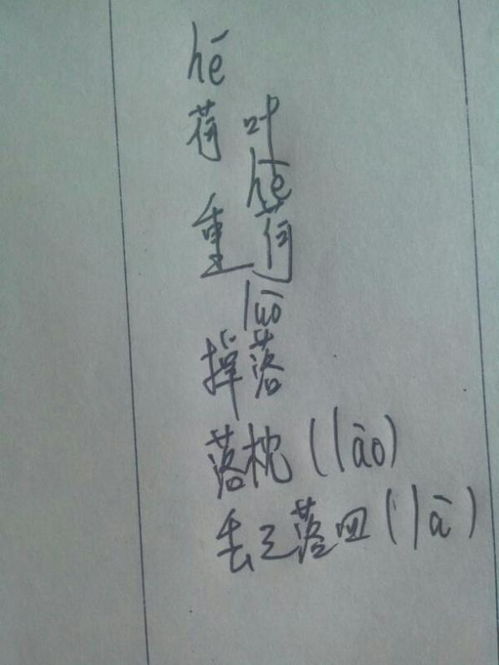 hé
荷叶
hè
重荷
luò
掉落
落枕(lào)
丢三落四(là)